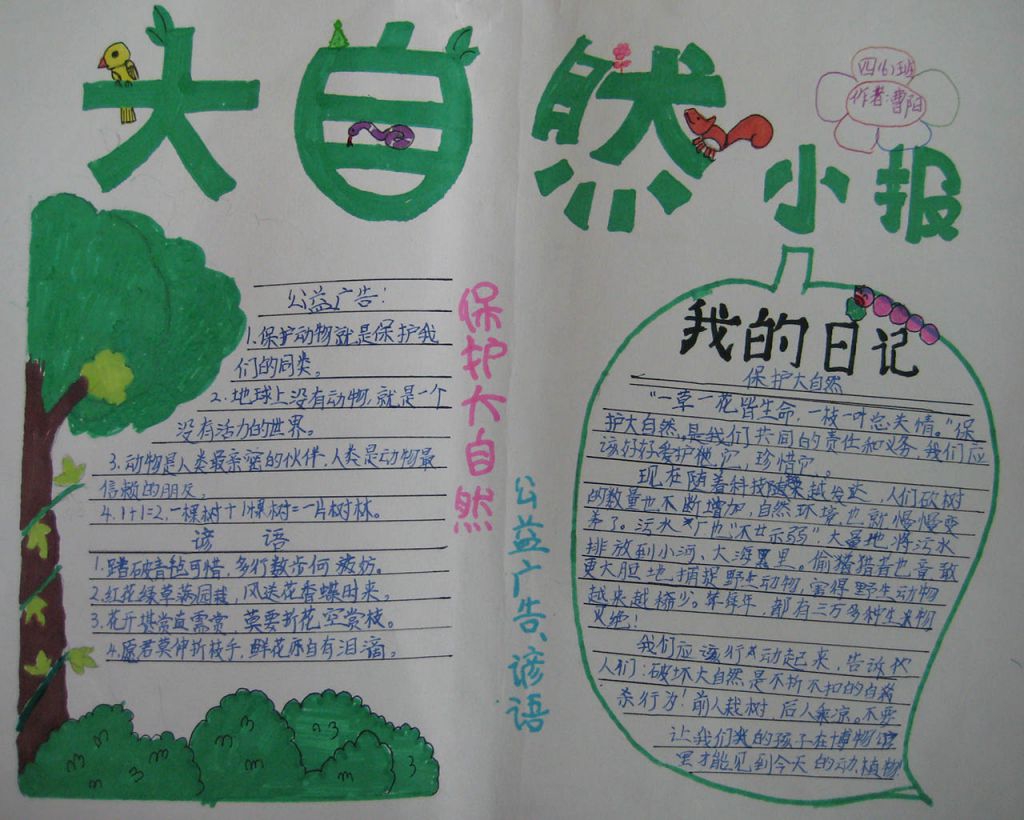 大自然
小报
四(6)班
作者:曹阳
公益广告:
1.保护动物就是保护我
们的同类。
2.地球上没有动物,就是一个
没有活力的世界。
3.动物是人类最亲密的伙伴,人类是动物最
信赖的朋友。
4.1+1=2,一棵树+1棵树=一片树林。
谚语
1.踏破青毡可惜,多行数步何妨。
2.红花绿草满园栽,风送花香蝶时来。
3.花开堪赏直需赏,莫要折花空赏枝。
4.愿君莫伸折枝手,鲜花亦自有泪滴。
保护大自然
公益广告、谚语
我的日记
保护大自然
“一草一花皆生命,一枝一叶总关情。”保
护大自然,是我们共同的责任和义务,我们应
该好好爱护它,珍惜它。
现在随着科技越来越发达,人们砍树
的数量也不断增加,自然环境也就慢慢变
差了。污水厂也“不甘示弱”大量地将污水
排放到小河、大海里。偷猎者也竟敢
更大胆地捕捉野生动物,害得野生动物
越来越稀少。年年,都有三万多种生物
灭绝!
我们应该行动起来,告诉
人们:破坏大自然是不折不扣的自
杀行为!前人栽树,后人乘凉。不要
让我们的孩子在博物馆
里才能见到今天的动植物